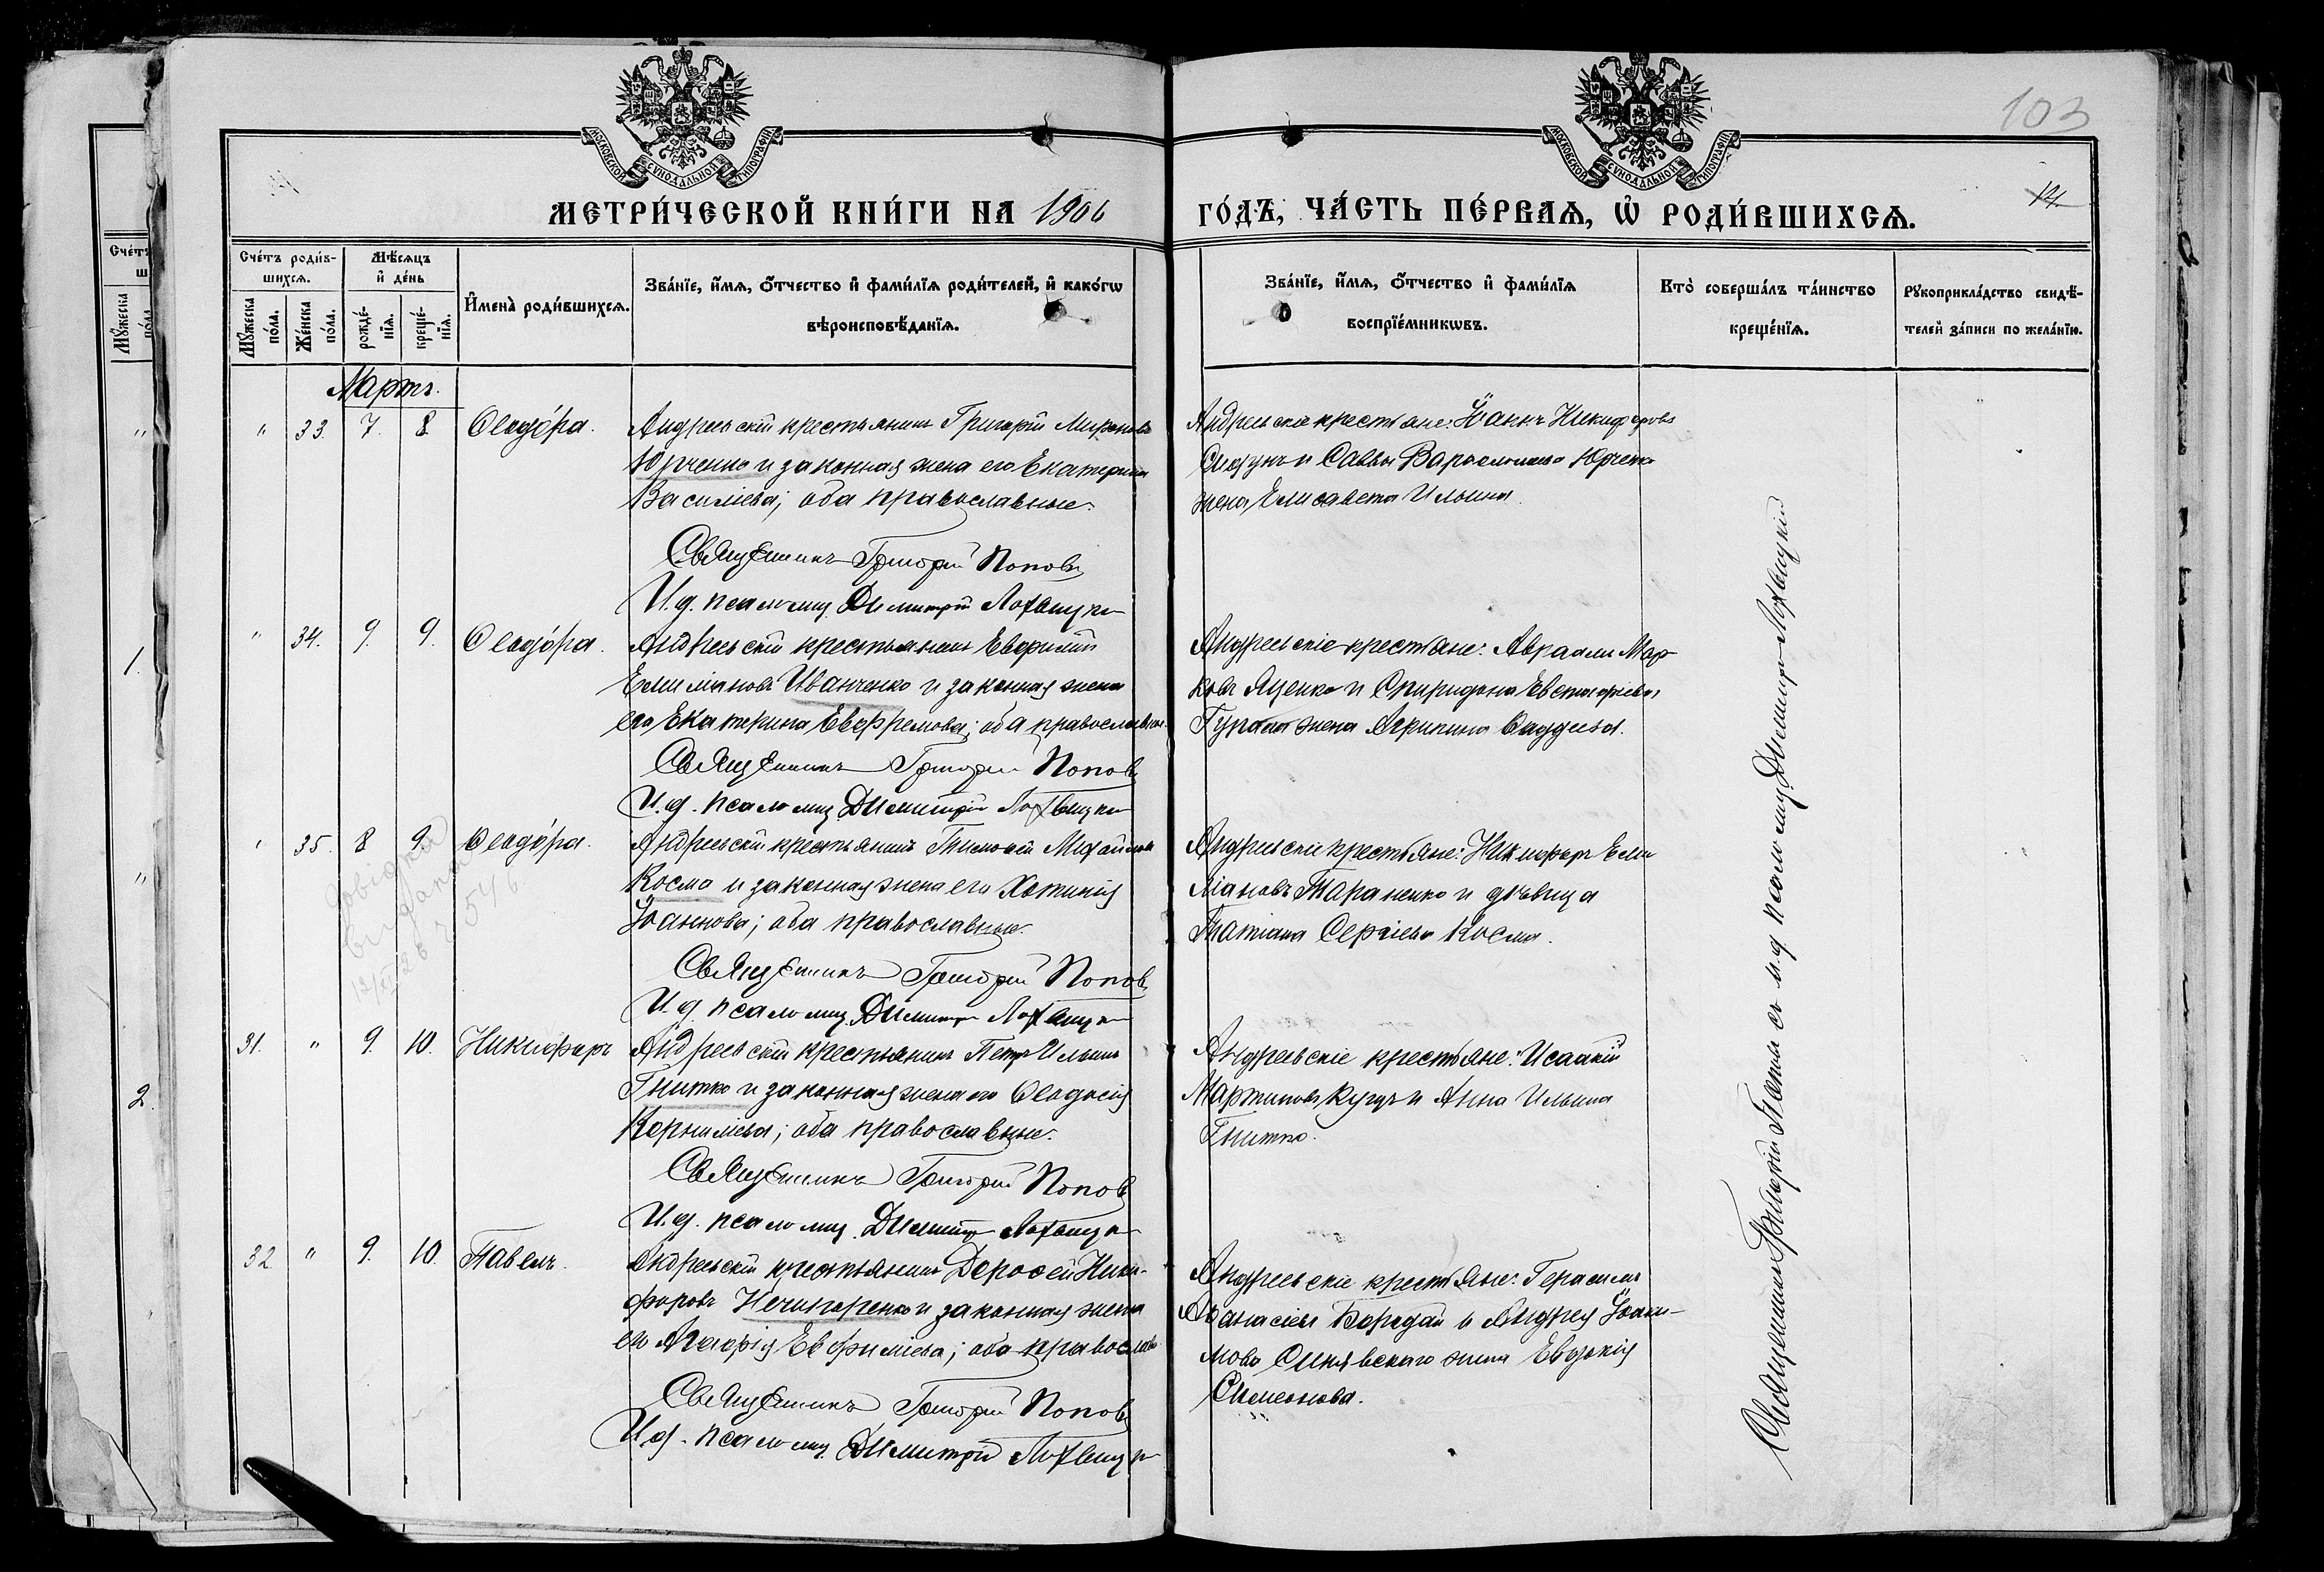 103
14.
МОСКОВСКОЙ СУНОДАЛЬНОЙ ТИПОГРАФІИ
МОСКОВСКОЙ СУНОДАЛЬНОЙ ТИПОГРАФІИ
МЕТРИ́ЧЕСКОЙ КНИ́ГИ НА 1906
ГО́ДЪ, ЧА́СТЬ ПЕ́РВАѦ, Ѡ҆ РОДИ́ВШИХСѦ.
Сче́тъ роди́в-
шихсѧ.
Мꙋ́жеска по́ла.
Же́нска по́ла.
Мѣ́сѧцъ и҆ де́нь
рожде́-
нїѧ.
креще́-
нїѧ.
И҆мена̀ роди́вшихсѧ.
Зва́нїе, и҆́мѧ, ѻ҆́тчество и҆ фами́лїѧ роди́телей, и҆ како́гѡ
вѣроисповѣ́данїѧ.
Зва́нїе, и҆́мѧ, ѻ҆́тчество и҆ фами́лїѧ
воспрїе́мникѡвъ.
Кто̀ соверша́лъ та́инство
креще́нїѧ.
Рꙋкоприкла́дство свидѣ́-
телей за́писи по жела́нїю.
Мартъ.
" 33. 7. 8. Ѳеодо́ра.
Андреевскій крестьянинъ Григорій Мироновъ
Юрченко и законная жена его Екатерина
Василіева; оба православные.
Священникъ Григорій Поповъ
И.д. псаломщ. Димитрій Лохвицкій
Андреевскіе крестьяне: Іоаннъ Никифоровъ
и Саввы Варѳоломеева Юрченко
жена Елисавета Ильина.
" 34. 9. 9. Ѳеодо́ра.
Андреевскій крестьянинъ Евѳимій
Емиліановъ Иванченко и законная жена
его Екатерина Евфремова; оба православные.
Священникъ Григорій Поповъ
И.д. псаломщ. Димитрій Лохвицкій
Андреевскіе крестьяне: Авраамъ Мар-
ковъ Яценко и Спиридона Евстафіева
жена Агрипина Ѳаддеева.
" 35. 8 9. Ѳеодо́ра.
Андреевскій крестьянинъ Тимоѳей Михайловъ
Косма и законная жена его Хотинія
Іоаннова; оба православные.
Священникъ Григорій Поповъ
И.д. псаломщ. Димитр. Лохвицкій
Андреевскіе крестьяне: Никифоръ Еми-
ліановъ Тараненко и дѣвица
Татіана Сергіева Косма.
31. " 9. 10. Никифоръ
Андреевскій крестьянинъ Петръ Ильинъ
Гнитко и законная жена его Ѳеодосія
Корниліева; оба православные.
Священникъ Григорій Поповъ
И.д. псаломщ. Димитр. Лохвицкій
Андреевскіе крестьяне: Исаакій
Мартиновъ Куцъ и Анна Ильина
Гнитко.
32. " 9. 10. Павелъ.
Андреевскій крестьянинъ Дороѳей Ники-
форовъ Нечипоренко и законная жена
его Агафія Евфиміева; оба православ.
Священникъ Григорій Поповъ
И.д. псаломщ. Димитрій Лохвицкій
Андреевскіе крестьяне: Герасимъ
Аѳанасіевъ Бородай и Андрея Іоаки-
мова Синявскаго жена Евдокія
Симеонова.
Священникъ Григорій Поповъ съ и.д. псаломщ. Димитр. Лохвицкій
1.
2.